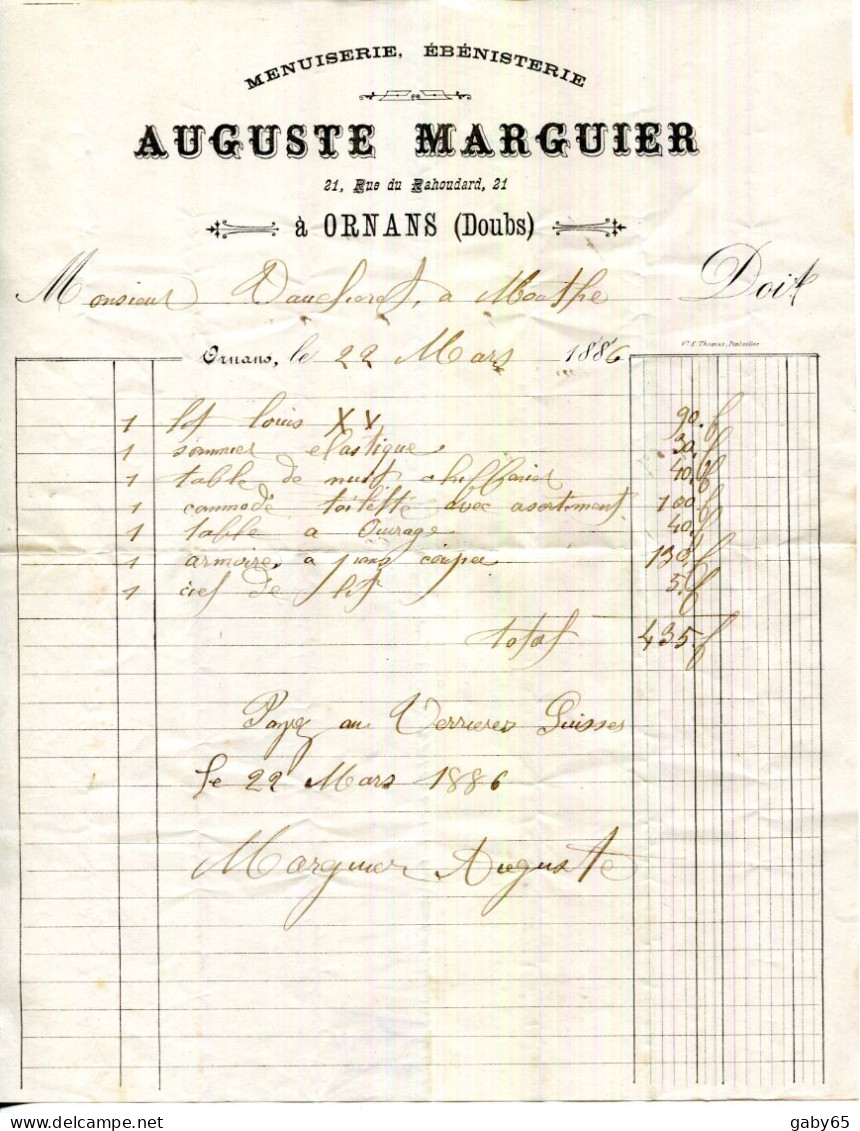 MENUISERIE, ÉBÉNISTERIE
AUGUSTE MARGUIER
21, Rue du Rahoudard, 21
à ORNANS (Doubs)
Monsieur à Mouthe Doit
Vve E. Thomas, Pontarlier
Ornans, le 22 Mars 1886
1 lit louis XV 90.f
1 sommier elastique 30.f
1 table de nuit chiffonier 40.f
1 commode toilette avec asortiment 100f
1 table a Ouvrage 40.f
1 armoire, a pans coupee 130.f
1 ciel de lit 5.f
total 435.f
Payé au Verrieres Suisses
Le 22 Mars 1886
Marguier Auguste
gaby65